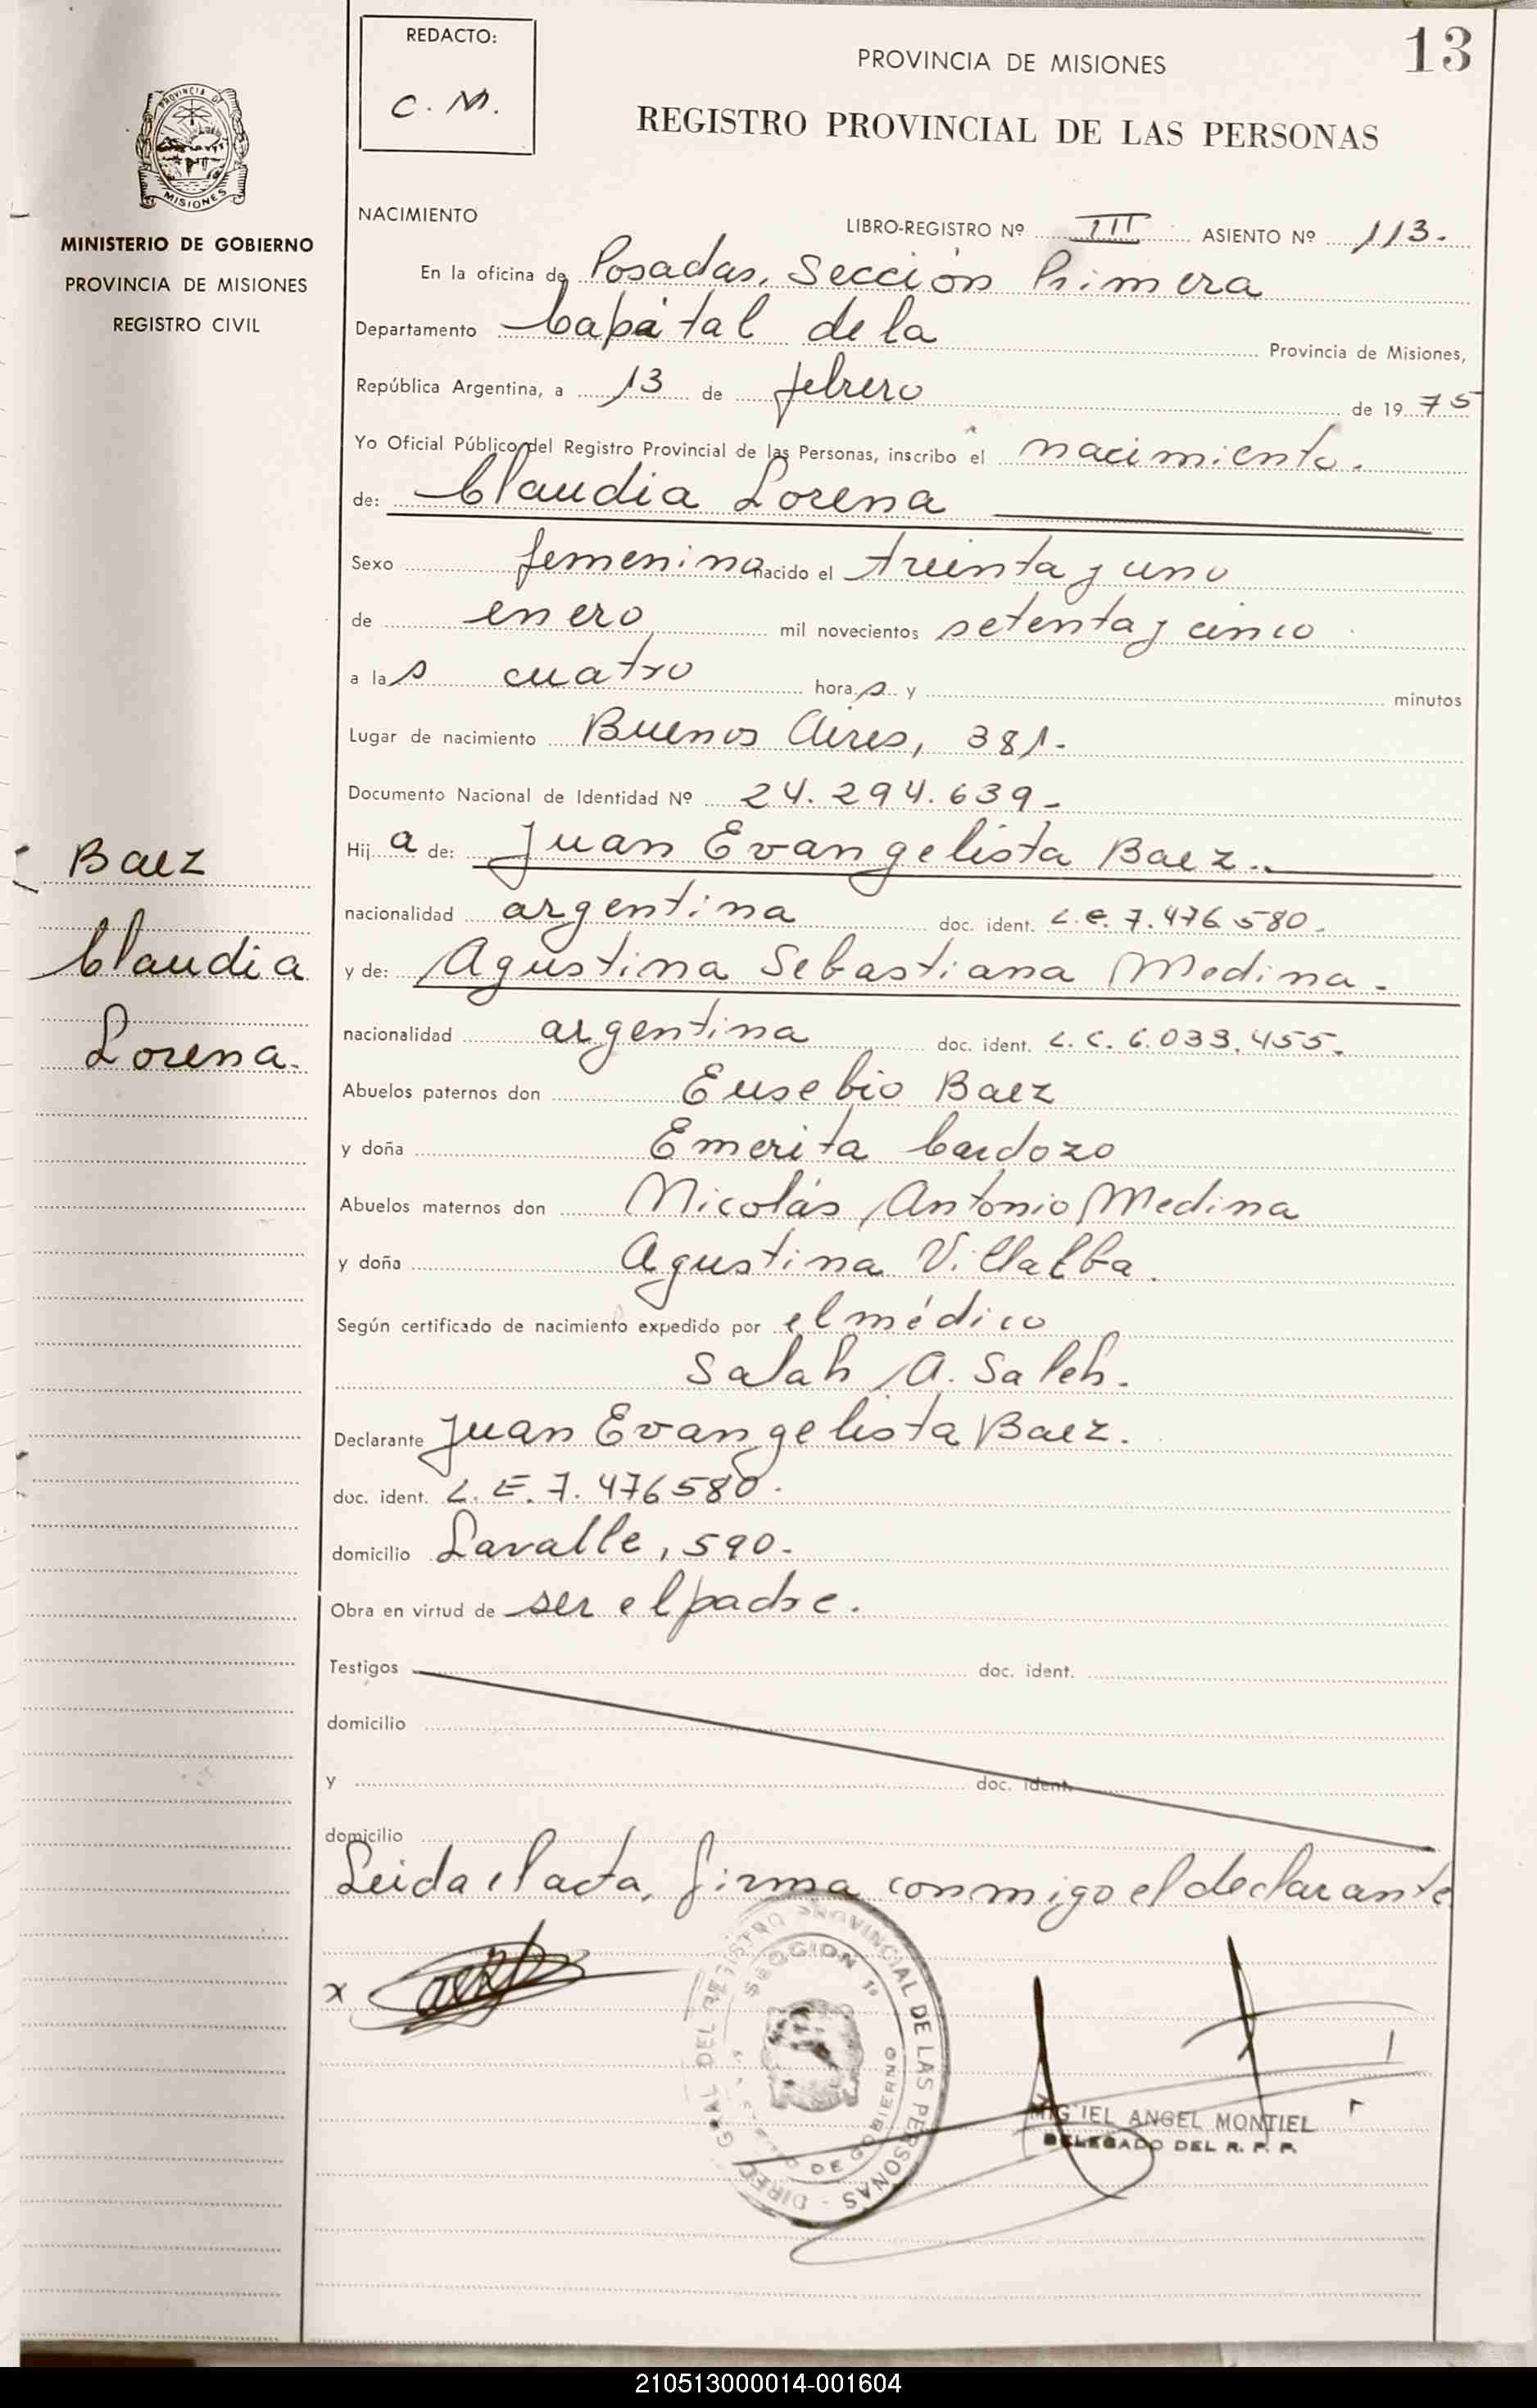 REDACTO:
C. M.
13
PROVINCIA DE MISIONES
REGISTRO PROVINCIAL DE LAS PERSONAS
PROVINCIA DE
MISIONES
MINISTERIO DE GOBIERNO
PROVINCIA DE MISIONES
REGISTRO CIVIL
NACIMIENTO
LIBRO-REGISTRO Nº III ASIENTO Nº 113.
En la oficina de Posadas, Sección Primera
Departamento Capital de la Provincia de Misiones,
República Argentina, a 13 de febrero de 1975
Yo Oficial Público del Registro Provincial de las Personas, inscribo el nacimiento.
de: Claudia Lorena
Sexo femenina nacido el treinta y uno
de enero mil novecientos setenta y cinco
a las cuatro horas y minutos
Lugar de nacimiento Buenos Aires, 381.-
Documento Nacional de Identidad Nº 24.294.639-
Hija de: Juan Evangelista Baez.
nacionalidad argentina doc. ident. L.E. 7.476.580.
y de: Agustina Sebastiana Medina.
nacionalidad argentina doc. ident. L.C. 6.033.455.
Abuelos paternos don Eusebio Baez
y doña Emerita Cardozo
Abuelos maternos don Nicolás Antonio Medina
y doña Agustina Villalba.
Según certificado de nacimiento expedido por el médico
Salah A. Saleh.
Declarante Juan Evangelista Baez.
doc. ident. L.E. 7.476580.
domicilio Lavalle, 590.-
Obra en virtud de ser el padre.
Testigos doc. ident.
domicilio
y doc. ident.
domicilio
Leida el acta, firma conmigo el declarante
Baez
Claudia
Lorena.
x
DIREC. GRAL DEL REGISTRO PROVINCIAL DE LAS PERSONAS
SECCION 1º
DE GOBIERNO
MIGUEL ANGEL MONTIEL
DELEGADO DEL R. P. P.
210513000014-001604